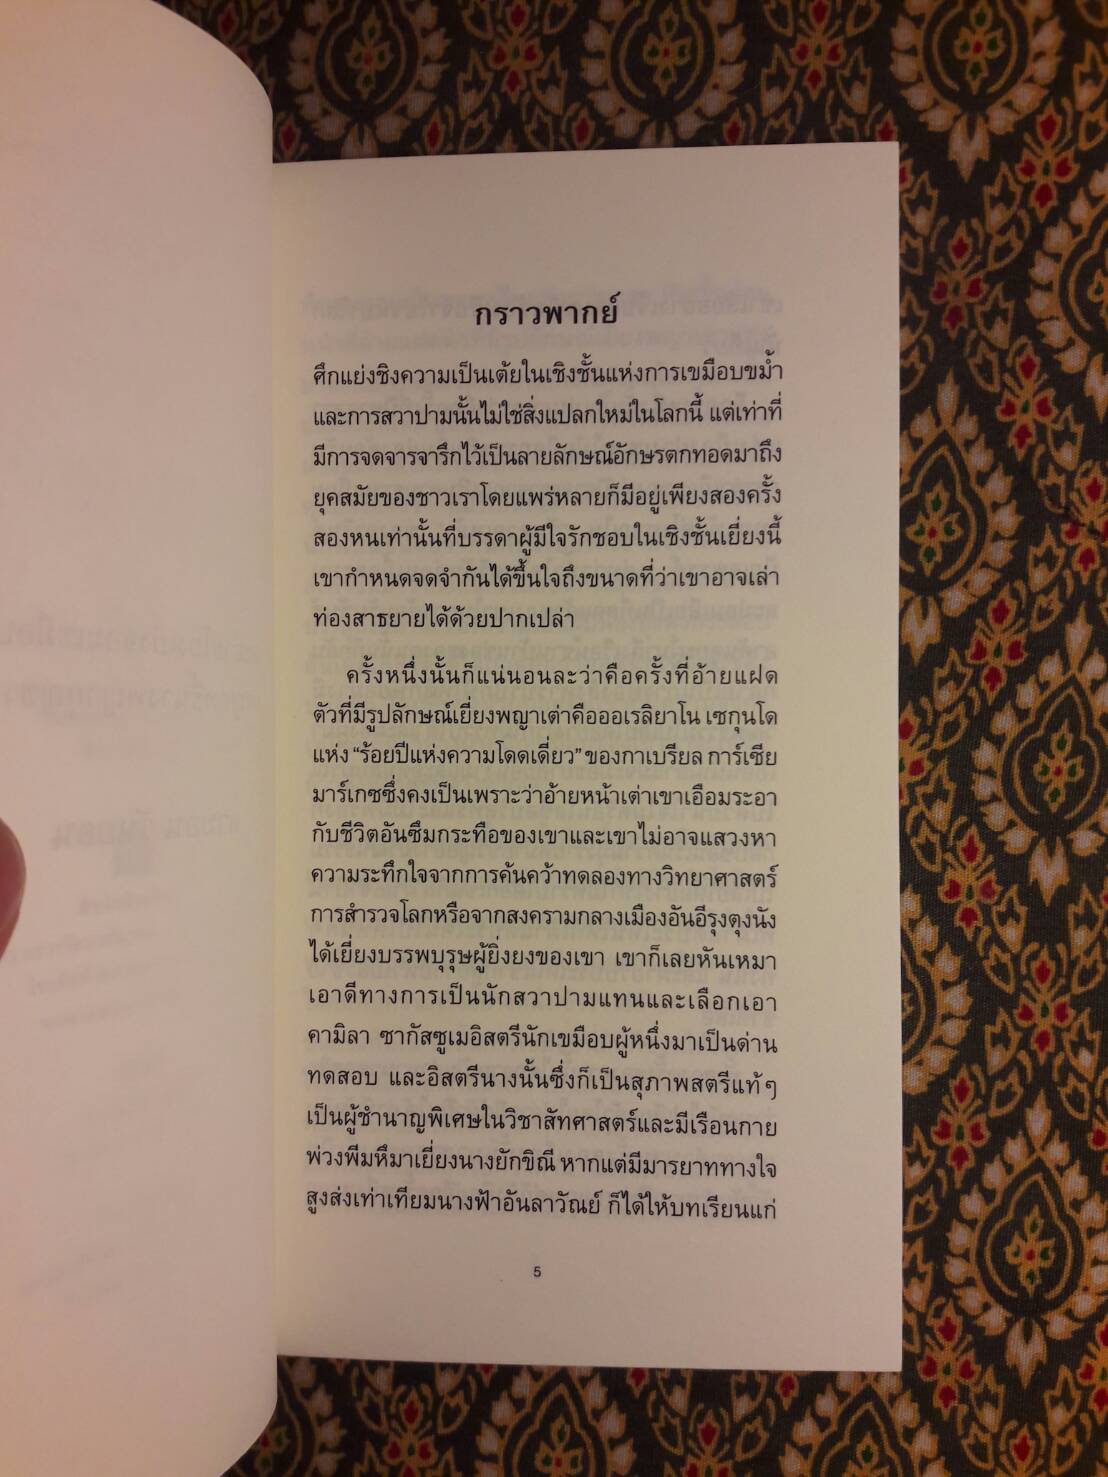 กราวพากย์
ศึกแย่งชิงความเป็นเต้ยในเชิงชั้นแห่งการเขมือบขม้ำ
และการสวาปามนั้นไม่ใช่สิ่งแปลกใหม่ในโลกนี้ แต่เท่าที่
มีการจดจารจารึกไว้เป็นลายลักษณ์อักษรตกทอดมาถึง
ยุคสมัยของชาวเราโดยแพร่หลายก็มีอยู่เพียงสองครั้ง
สองหนเท่านั้นที่บรรดาผู้มีใจรักชอบในเชิงชั้นเยี่ยงนี้
เขากำหนดจดจำกันได้ขึ้นใจถึงขนาดที่ว่าเขาอาจเล่า
ท่องสาธยายได้ด้วยปากเปล่า
ครั้งหนึ่งนั้นก็แน่นอนละว่าคือครั้งที่อ้ายแฝด
ตัวที่มีรูปลักษณ์เยี่ยงพญาเต่าคือออเรลิยาโน เซกุนโด
แห่ง “ร้อยปีแห่งความโดดเดี่ยว” ของกาเบรียล การ์เซีย
มาร์เกซซึ่งคงเป็นเพราะว่าอ้ายหน้าเต่าเขาเอือมระอา
กับชีวิตอันซึมกระทือของเขาและเขาไม่อาจแสวงหา
ความระทึกใจจากการค้นคว้าทดลองทางวิทยาศาสตร์
การสำรวจโลกหรือจากสงครามกลางเมืองอันอีรุงตุงนัง
ได้เยี่ยงบรรพบุรุษผู้ยิ่งยงของเขา เขาก็เลยหันเหมา
เอาดีทางการเป็นนักสวาปามแทนและเลือกเอา
คามิลา ซากัสซูเมอิสตรีนักเขมือบผู้หนึ่งมาเป็นด่าน
ทดสอบ และอิสตรีนางนั้นซึ่งก็เป็นสุภาพสตรีแท้ๆ
เป็นผู้ชำนาญพิเศษในวิชาสัทศาสตร์และมีเรือนกาย
พ่วงพีมหึมาเยี่ยงนางยักขิณี หากแต่มีมารยาททางใจ
สูงส่งเท่าเทียมนางฟ้าอันลาวัณย์ ก็ได้ให้บทเรียนแก่
5